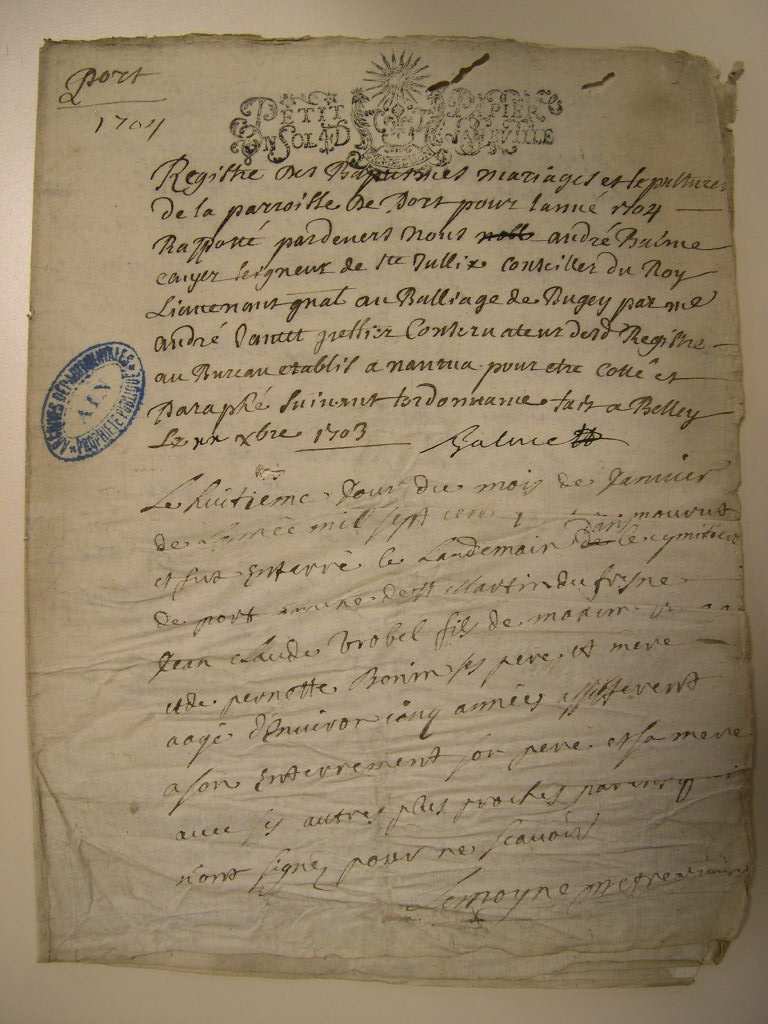 Port
1704
PETIT PAPIER
UN SOL
Registre des Baptesmes mariages et sepultures
de la parroisse de Port pour lanné 1704
Rapporté pardevers nous andré Balme
Seigneur de Ste Jullix Conseiller du Roy
Lieutenant gnal au Balliage de Bugey par me
andré greffier Conservateur desd Registre
au Bureau establis a nantua pour etre cotté et
Paraphé Suivant lordonnance fait a Belley
Le xbre 1703 Balme
ARCHIVES DEPARTEMENTALES
AIN
PROPRIETE PUBLIQUE
Le huitieme Jour du mois de Janvier
de Lannée mil sept cens mourut
et fut Enterré le Landemain dans le cymitiere
de port de St Martin du fresne
Jean Claude fils de
et de pernette Bonin ses pere et mere
aagé d'Environ cinq années
a son Enterrement son pere et sa mere
avec ses autres plus proches parens
n'ont signez pour ne scavoir
Lemoyne